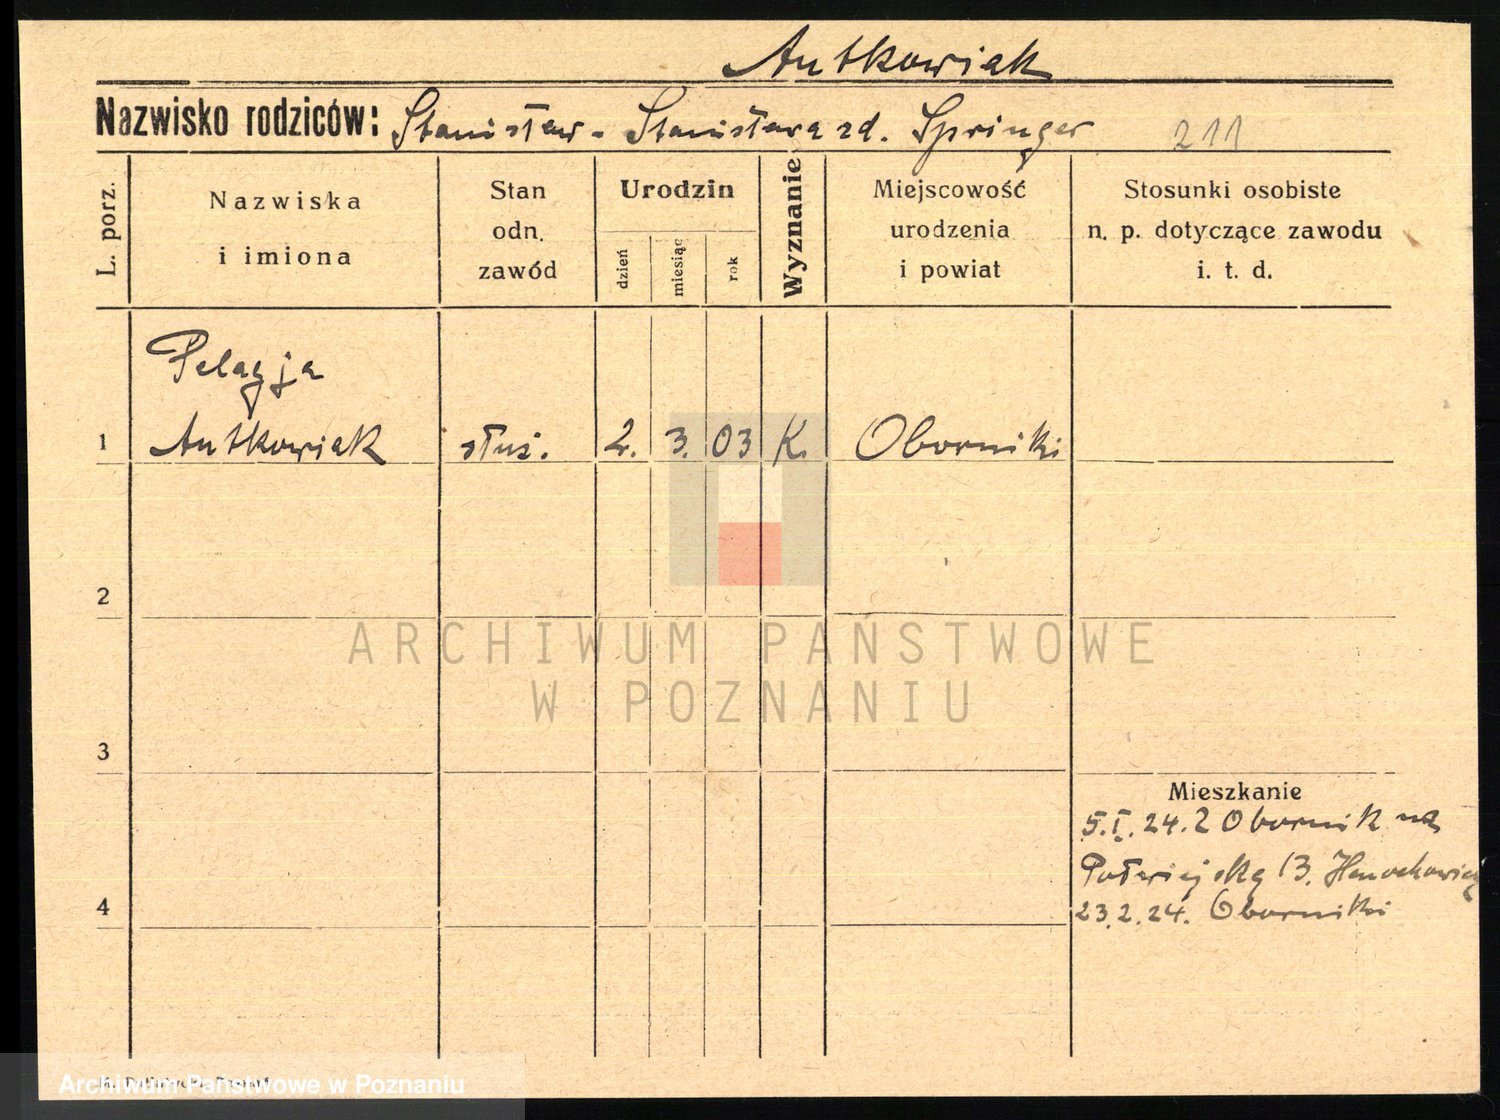 Antkowiak
Nazwisko rodziców: Stanisław - Stanisława zd. Springer 211
L. porz.
Nazwiska
i imiona
Stan
odn.
zawód
Urodzin
dzień
miesiąc
rok
Wyznanie
Miejscowość
urodzenia
i powiat
Stosunki osobiste
n. p. dotyczące zawodu
i. t. d.
Pelagja
1 Antkowiak służ. 2. 3. 03 K. Oborniki
2
ARCHIWUM PAŃSTWOWE
W POZNANIU
3
Mieszkanie
5.I.24. z Obornik na
Półwiejską 13. Henochowicz
4 23.2.24. Oborniki
Archiwum Państwowe w Poznaniu